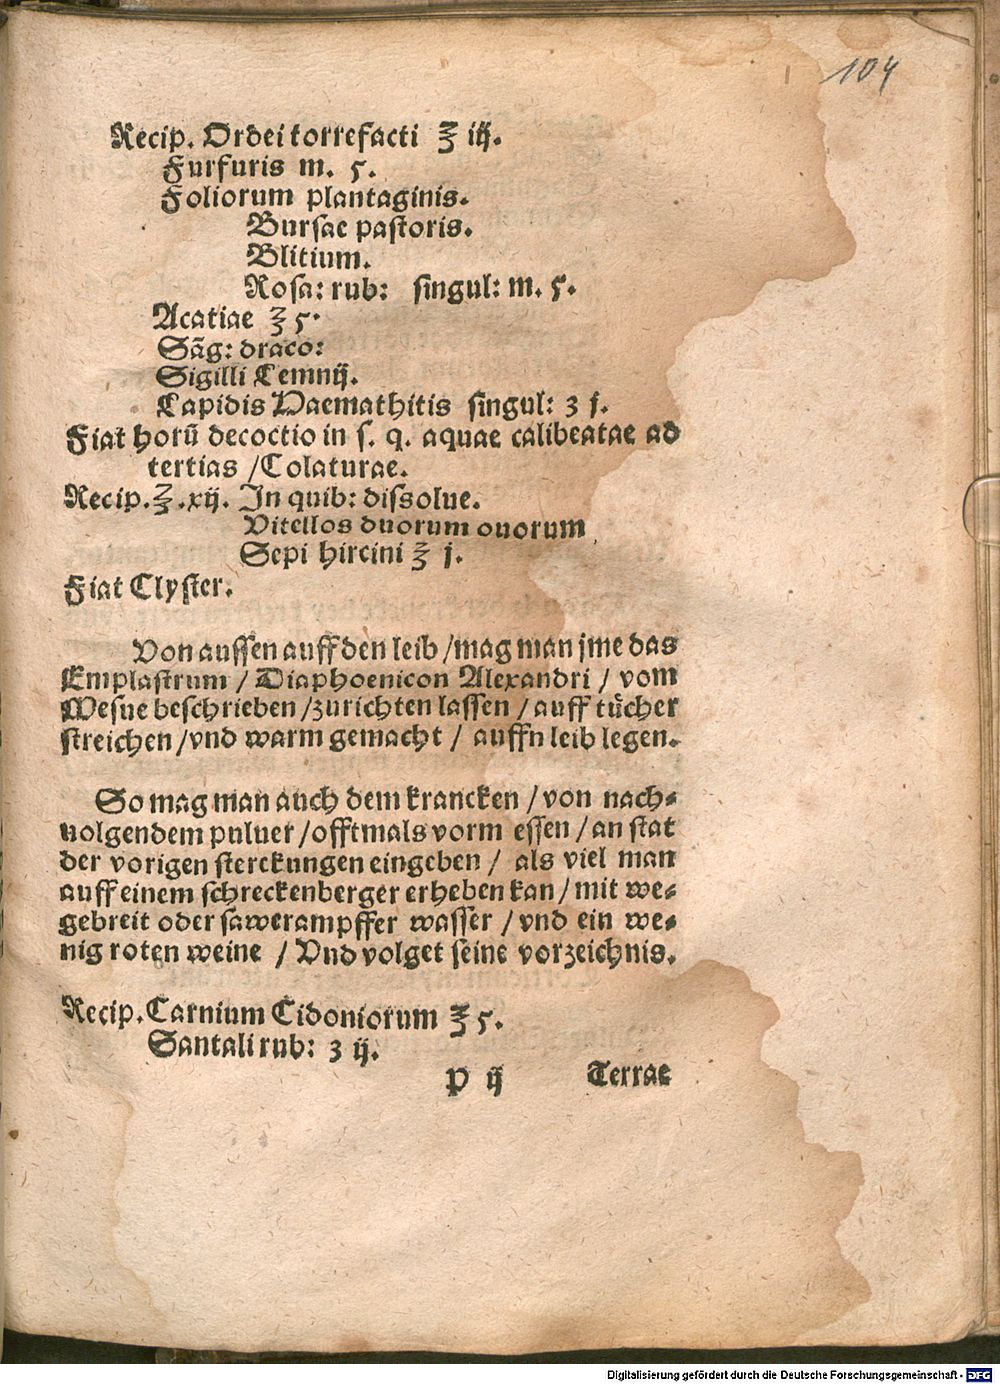 104
Recip. Ordei torrefacti ℥ iij.
Furfuris m. ꝭ.
Foliorum plantaginis.
Bursae pastoris.
Blitium.
Rosa: rub: singul: m. ꝭ.
Acatiae ℥ ꝭ.
Sãg: draco:
Sigilli Lemnij.
Lapidis Haemathitis singul: ʒ j.
Fiat horũ decoctio in s. q. aquae calibeatae ad
tertias / Colaturae.
Recip. ℥. xij. In quib: dissolue.
Vitellos duorum ouorum
Sepi hircini ℥ j.
Fiat Clyster.
Von aussen auff den leib / mag man jme das
Emplastrum / Diaphoenicon Alexandri / vom
Mesue beschrieben / zurichten lassen / auff tücher
streichen / vnd warm gemacht / auffn leib legen.
So mag man auch dem krancken / von nach-
uolgendem puluer / offtmals vorm essen / an stat
der vorigen sterckungen eingeben / als viel man
auff einem schreckenberger erheben kan / mit we-
gebreit oder sawerampffer wasser / vnd ein we-
nig roten weine / Vnd volget seine vorzeichnis.
Recip. Carnium Cidoniorum ℥ ꝭ.
Santali rub: ʒ ij.
P ij Terrae
Digitalisierung gefördert durch die Deutsche Forschungsgemeinschaft - DFG